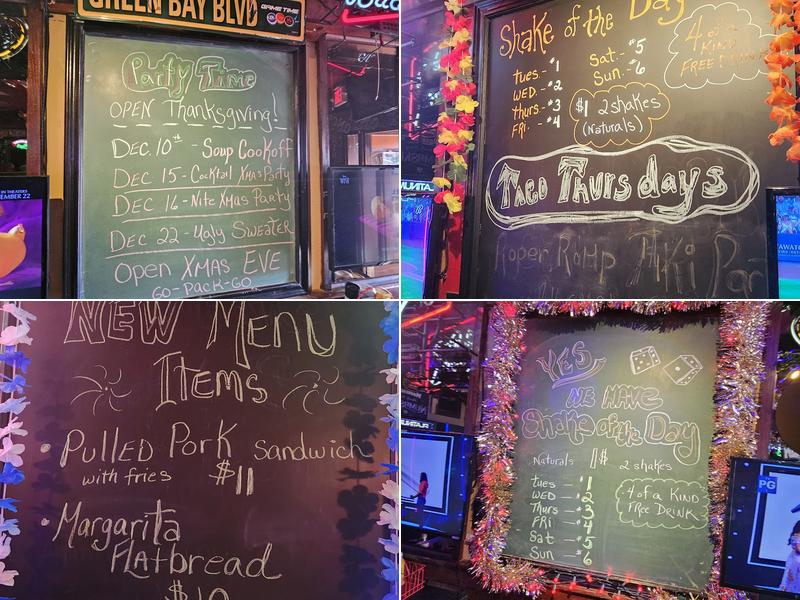 GREEN BAY BLVD
GAME TIME
Party Time
OPEN Thanksgiving!
DEC. 10th - Soup Cookoff
DEC 15 - Cocktail XMas Party
DEC 16 - Nite XMas Party
DEC 22 - Ugly Sweater
Open XMAS EVE
GO-PACK-GO
IN THEATERS
EMBER 22
Shake of the Day
tues. - #1
WED. - #2
thurs. - #3
FRI. - #4
Sat. - #5
Sun. - #6
4 of a
KIND
FREE DRINK
$1 2 shakes
(Naturals)
TACO Thursdays
NEW MENU
ITEMS
• PULLED PORK sandwich
with fries $11
• Margarita
FLAtbread
$10
YES
WE HAVE
Shake of the Day
Naturals 1$ 2 shakes
tues — #1
WED — #2
Thurs — #3
FRI — #4
Sat — #5
Sun — #6
4 of a KIND
FREE DRINK
PG